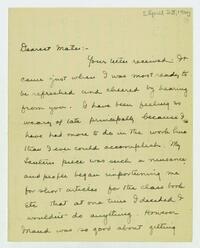 April 28, 1909
Dearest Mater:-
Your letter received. It
came just when I was most ready to
be refreshed and cheered by hearing
from you. I have been feeling so
weary of late principally because I
have had more to do in the work line
than I ever could accomplish. My
Lantern piece was such a nuisance
and people began importuning me
for short articles for the class book
etc. that at one time I decided I
wouldn't do anything. However
Maud was so good about getting